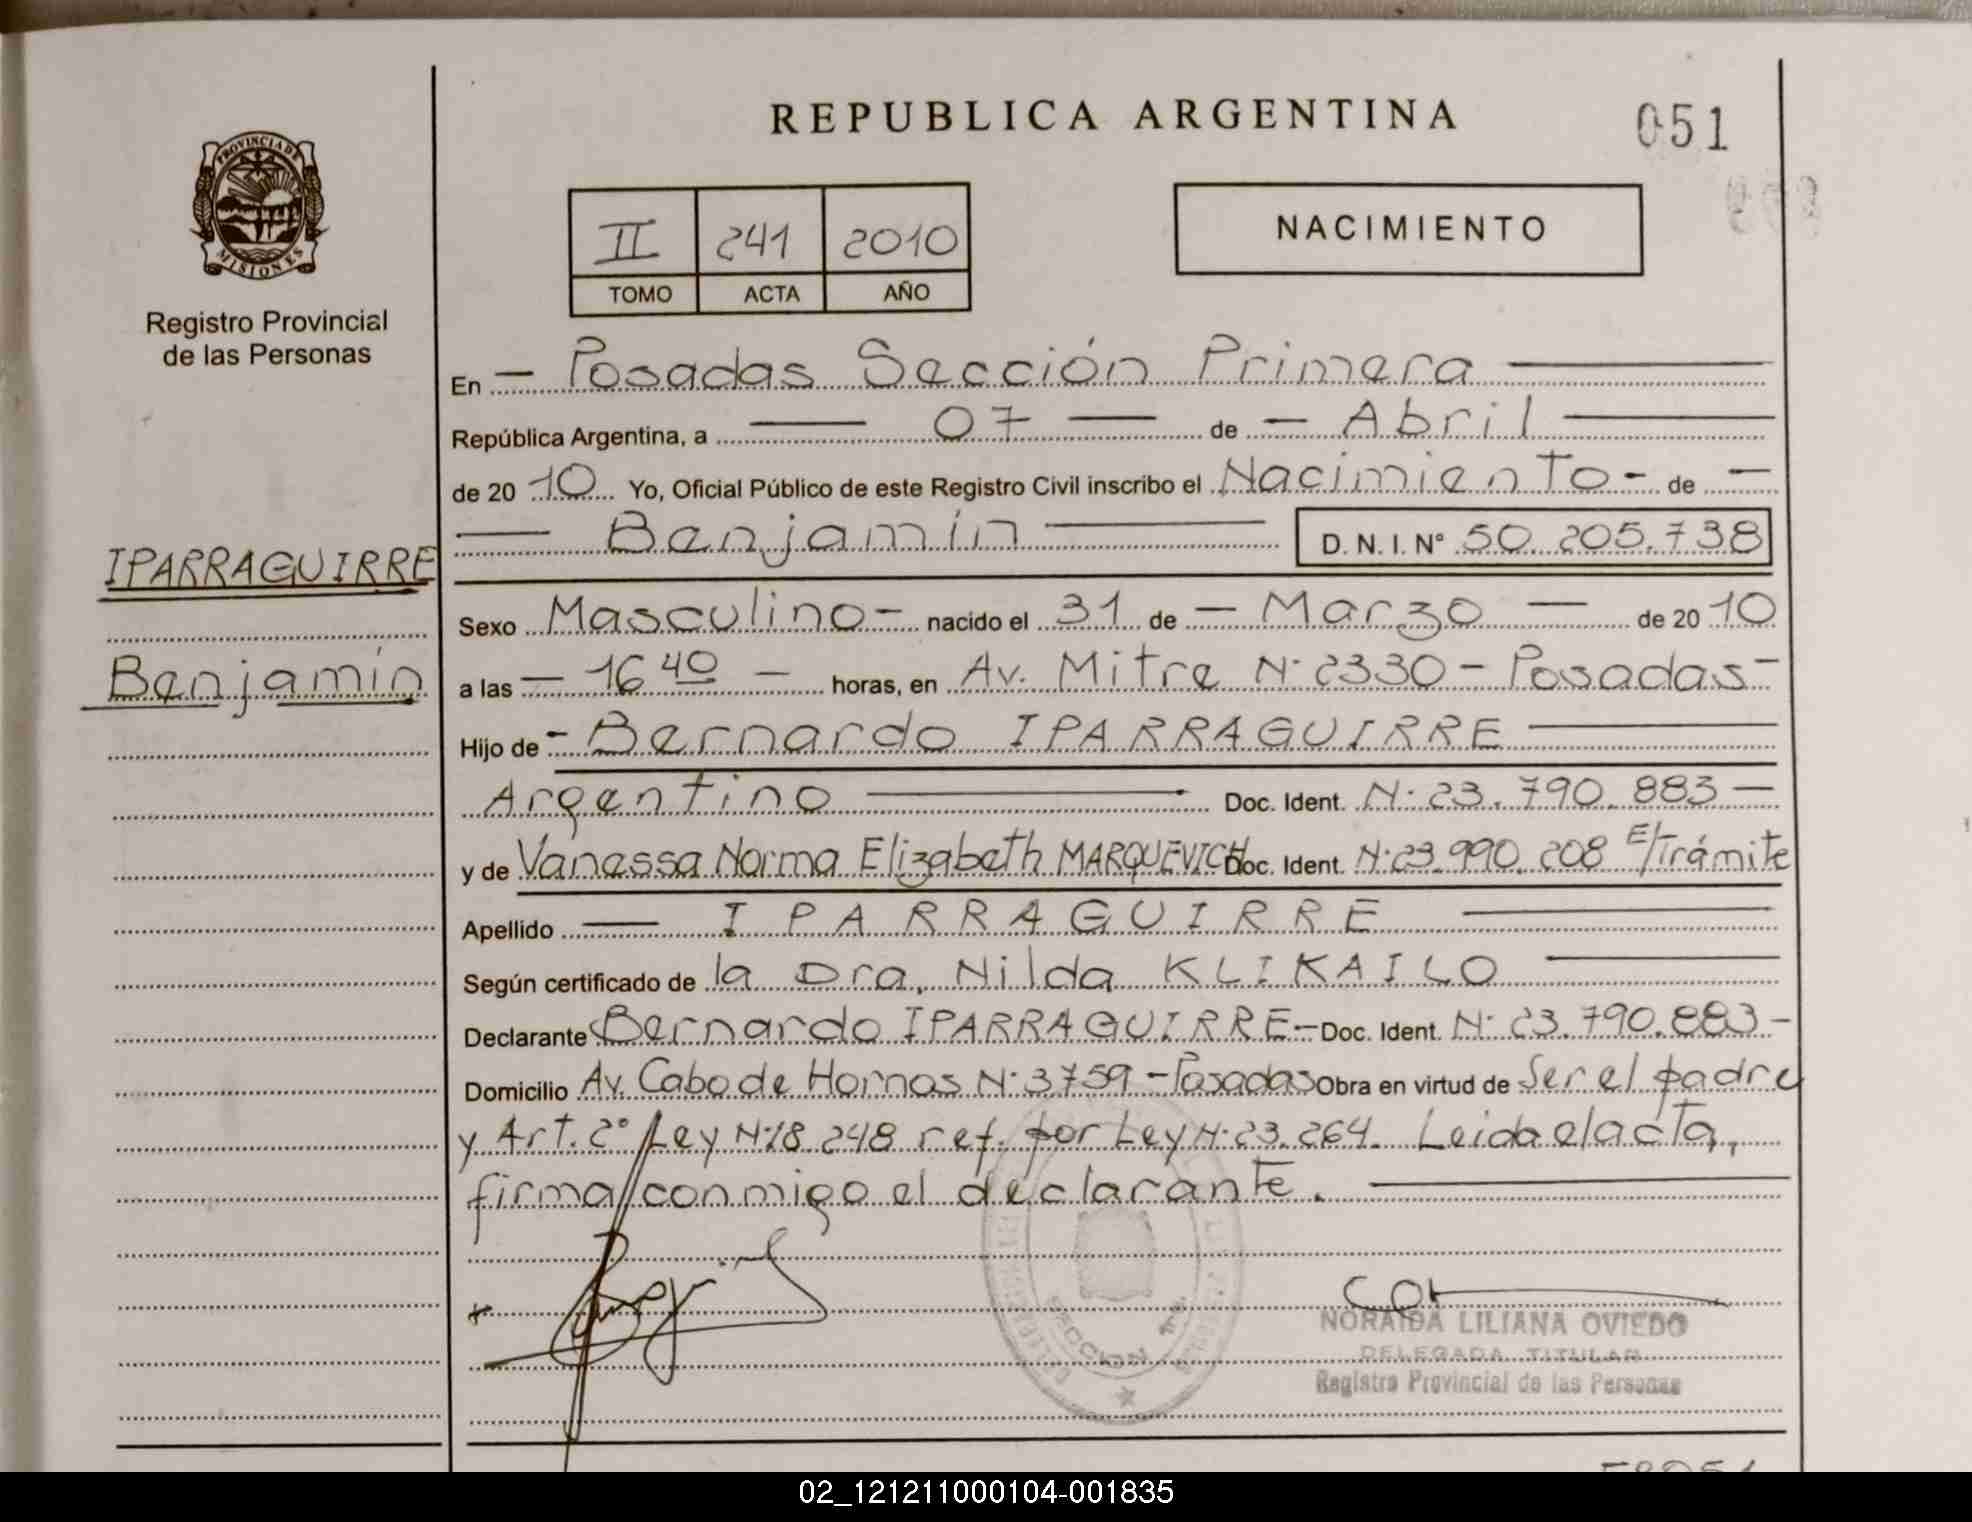 REPUBLICA ARGENTINA
051
PROVINCIA DE
MISIONES
Registro Provincial
de las Personas
II 241 2010
TOMO ACTA AÑO
NACIMIENTO
En — Posadas Sección Primera —
República Argentina, a — 07 — de — Abril —
de 20 10 Yo, Oficial Público de este Registro Civil inscribo el Nacimiento - de —
— Benjamín — D. N. I. N° 50.205.738
IPARRAGUIRRE
Benjamín
Sexo Masculino — nacido el 31 de — Marzo — de 20 10
a las — 16 40 — horas, en Av. Mitre N° 2330 - Posadas -
Hijo de - Bernardo IPARRAGUIRRE —
Argentino — Doc. Ident. N° 23.790.883 —
y de Vanessa Norma Elizabeth MARQUEVICH Doc. Ident. N° 23.990.208 E/trámite
Apellido — IPARRAGUIRRE —
Según certificado de la Dra. Nilda KLIKAILO —
Declarante Bernardo IPARRAGUIRRE — Doc. Ident. N° 23.790.883 -
Domicilio Av. Cabo de Hornos N° 3759 - Posadas Obra en virtud de Ser el padre
y Art. 2° Ley N° 18.248 ref. por Ley N° 23.264. Leida el acta,
firma conmigo el declarante. —
SECCION 1ª
NORAIDA LILIANA OVIEDO
DELEGADA TITULAR
Registro Provincial de las Personas
02_121211000104-001835